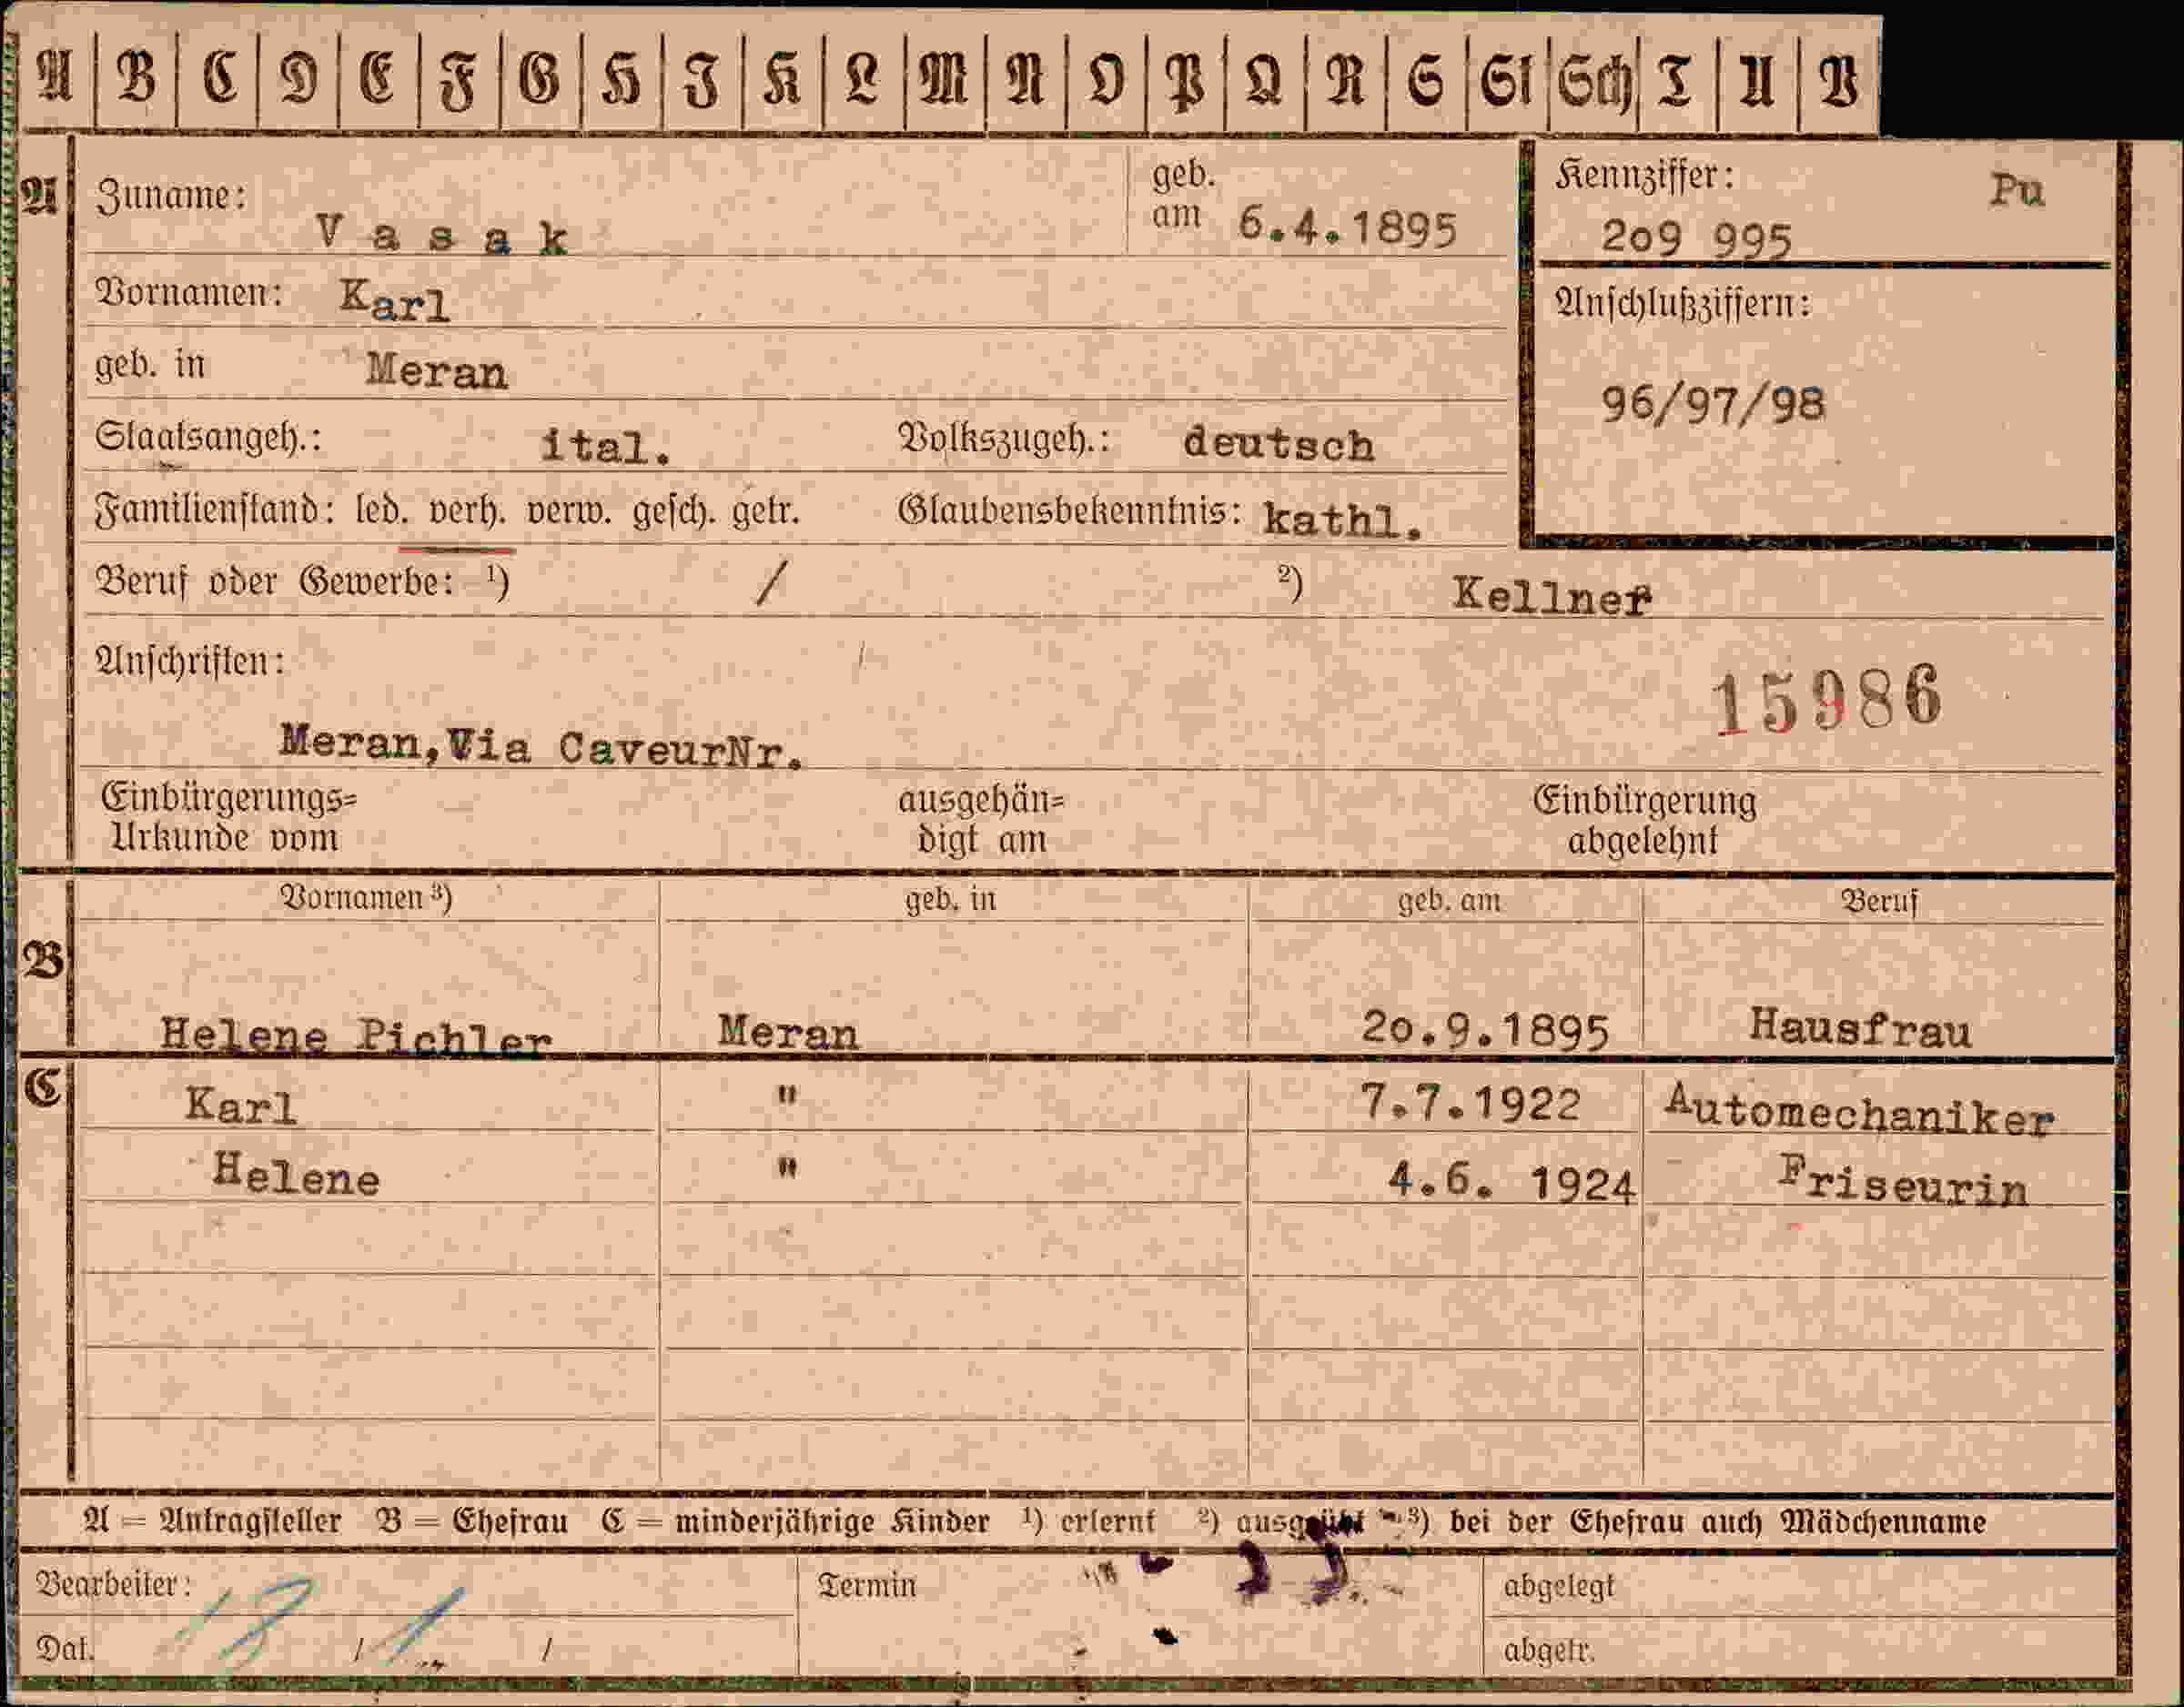 A B C D E F G H J K L M N O P Q R S St Sch T U V
A Zuname: V a s a k geb. am 6.4.1895 Kennziffer: 2o9 995 Pu
Vornamen: Karl Anschlußziffern:
geb. in Meran 96/97/98
Staatsangeh.: ital. Volkszugeh.: deutsch
Familienstand: led. verh. verw. gesch. getr. Glaubensbekenntnis: kathl.
Beruf oder Gewerbe: ¹) / ²) Kellner
Anschriften: 15986
Meran,Via CaveurNr.
Einbürgerungs= ausgehän= Einbürgerung
Urkunde vom digt am abgelehnt
Vornamen ³) geb. in geb. am Beruf
B
Helene Pichler Meran 2o.9.1895 Hausfrau
C Karl " 7.7.1922 Automechaniker
Helene " 4.6. 1924 Friseurin
A = Antragsteller B = Ehefrau C = minderjährige Kinder ¹) erlernt ²) ausgeübt ³) bei der Ehefrau auch Mädchenname
Bearbeiter: Termin abgelegt
Dat. / / abgetr.